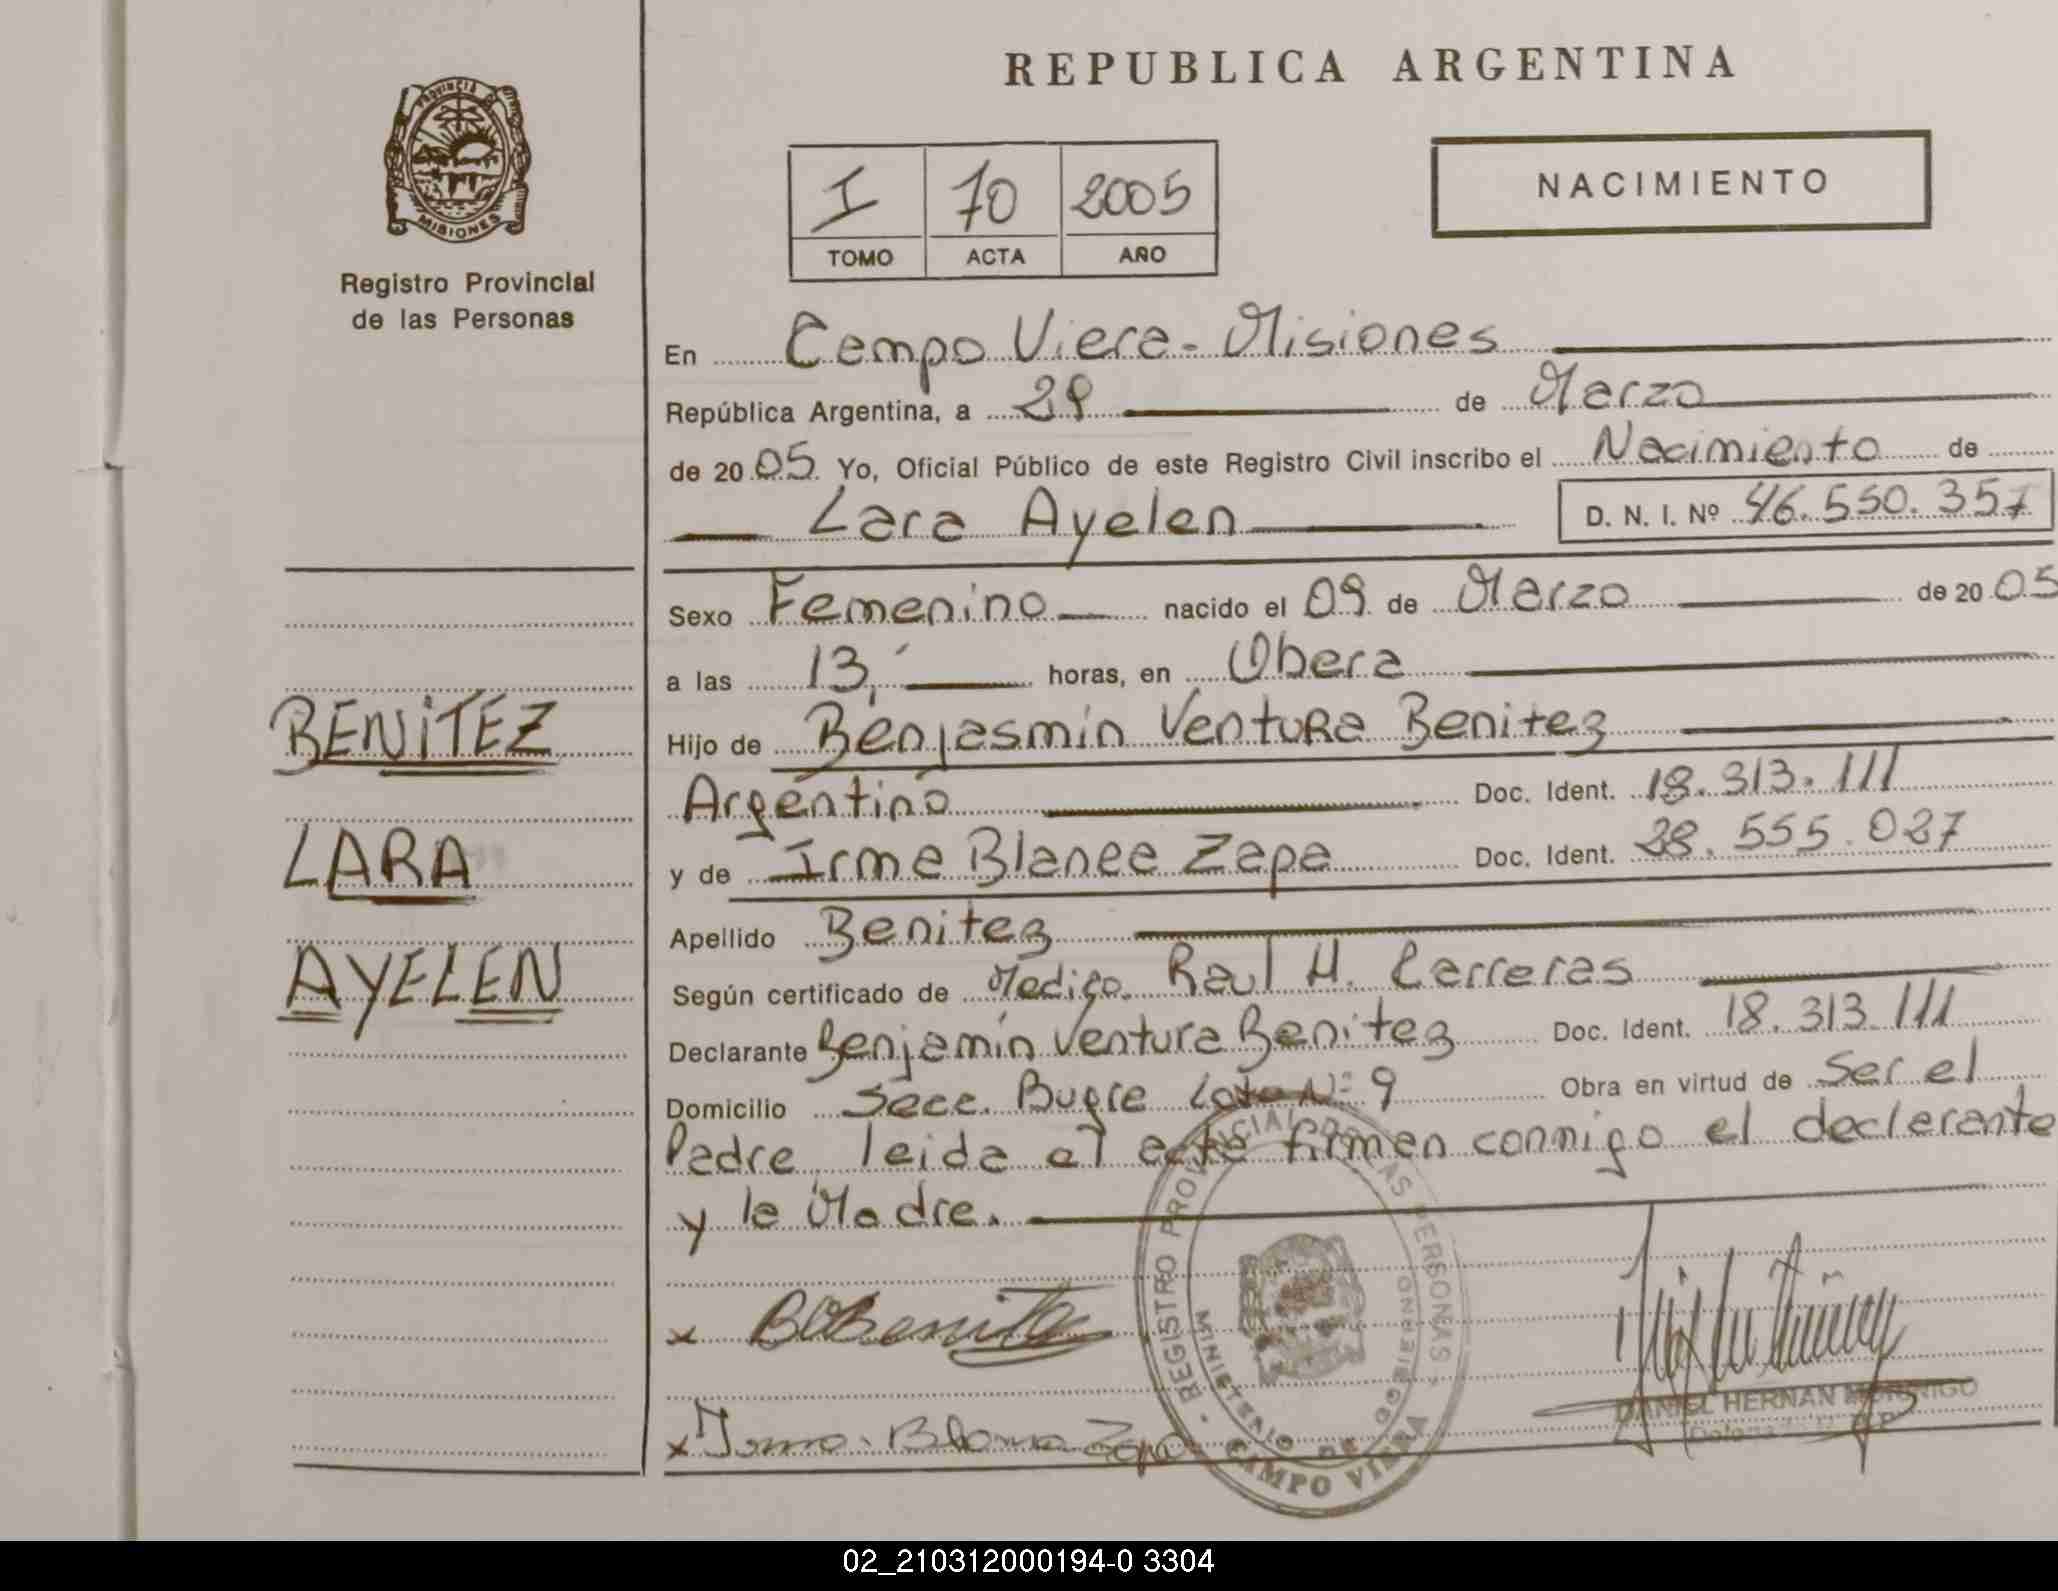 REPUBLICA ARGENTINA
PROVINCIA DE
MISIONES
Registro Provincial
de las Personas
I 70 2005
TOMO ACTA AÑO
NACIMIENTO
En Campo Viera - Misiones
República Argentina, a 29 de Marzo
de 2005 Yo, Oficial Público de este Registro Civil inscribo el Nacimiento de
Lara Ayelen D. N. I. Nº 46.550.357
Sexo Femenino nacido el 09 de Marzo de 2005
a las 13,- horas, en Obera
BENITEZ
Hijo de Benjasmín Ventura Benitez
Argentino Doc. Ident. 18.313.111
LARA
y de Irma Blanca Zapa Doc. Ident. 28.555.027
Apellido Benitez
AYELEN
Según certificado de Medico. Raul H. Carreras
Declarante Benjamín Ventura Benitez Doc. Ident. 18.313.111
Domicilio Secc. Bugre Lote Nº 9 Obra en virtud de Ser el
Padre leida el acta firman conmigo el declarante
y la Madre.
x B Benitez
x Irma. Blanca Zapa
REGISTRO PROVINCIAL DE LAS PERSONAS
MINISTERIO DE GOBIERNO
CAMPO VIERA
DANIEL HERNAN MORINIGO
02_210312000194-0 3304